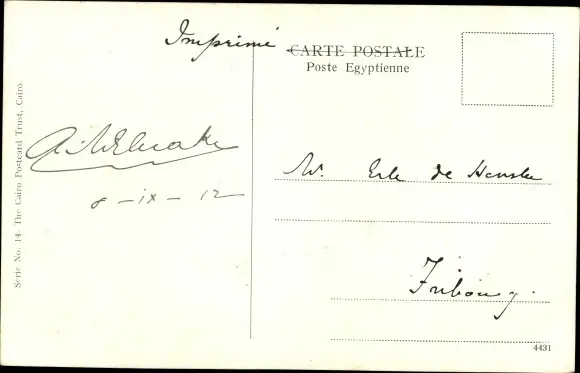 Imprimé
CARTE POSTALE
Poste Egyptienne
Serie No. 14 The Cairo Postcard Trust, Cairo.
8-IX-12
Mr. Erle de
Fribourg.
4431